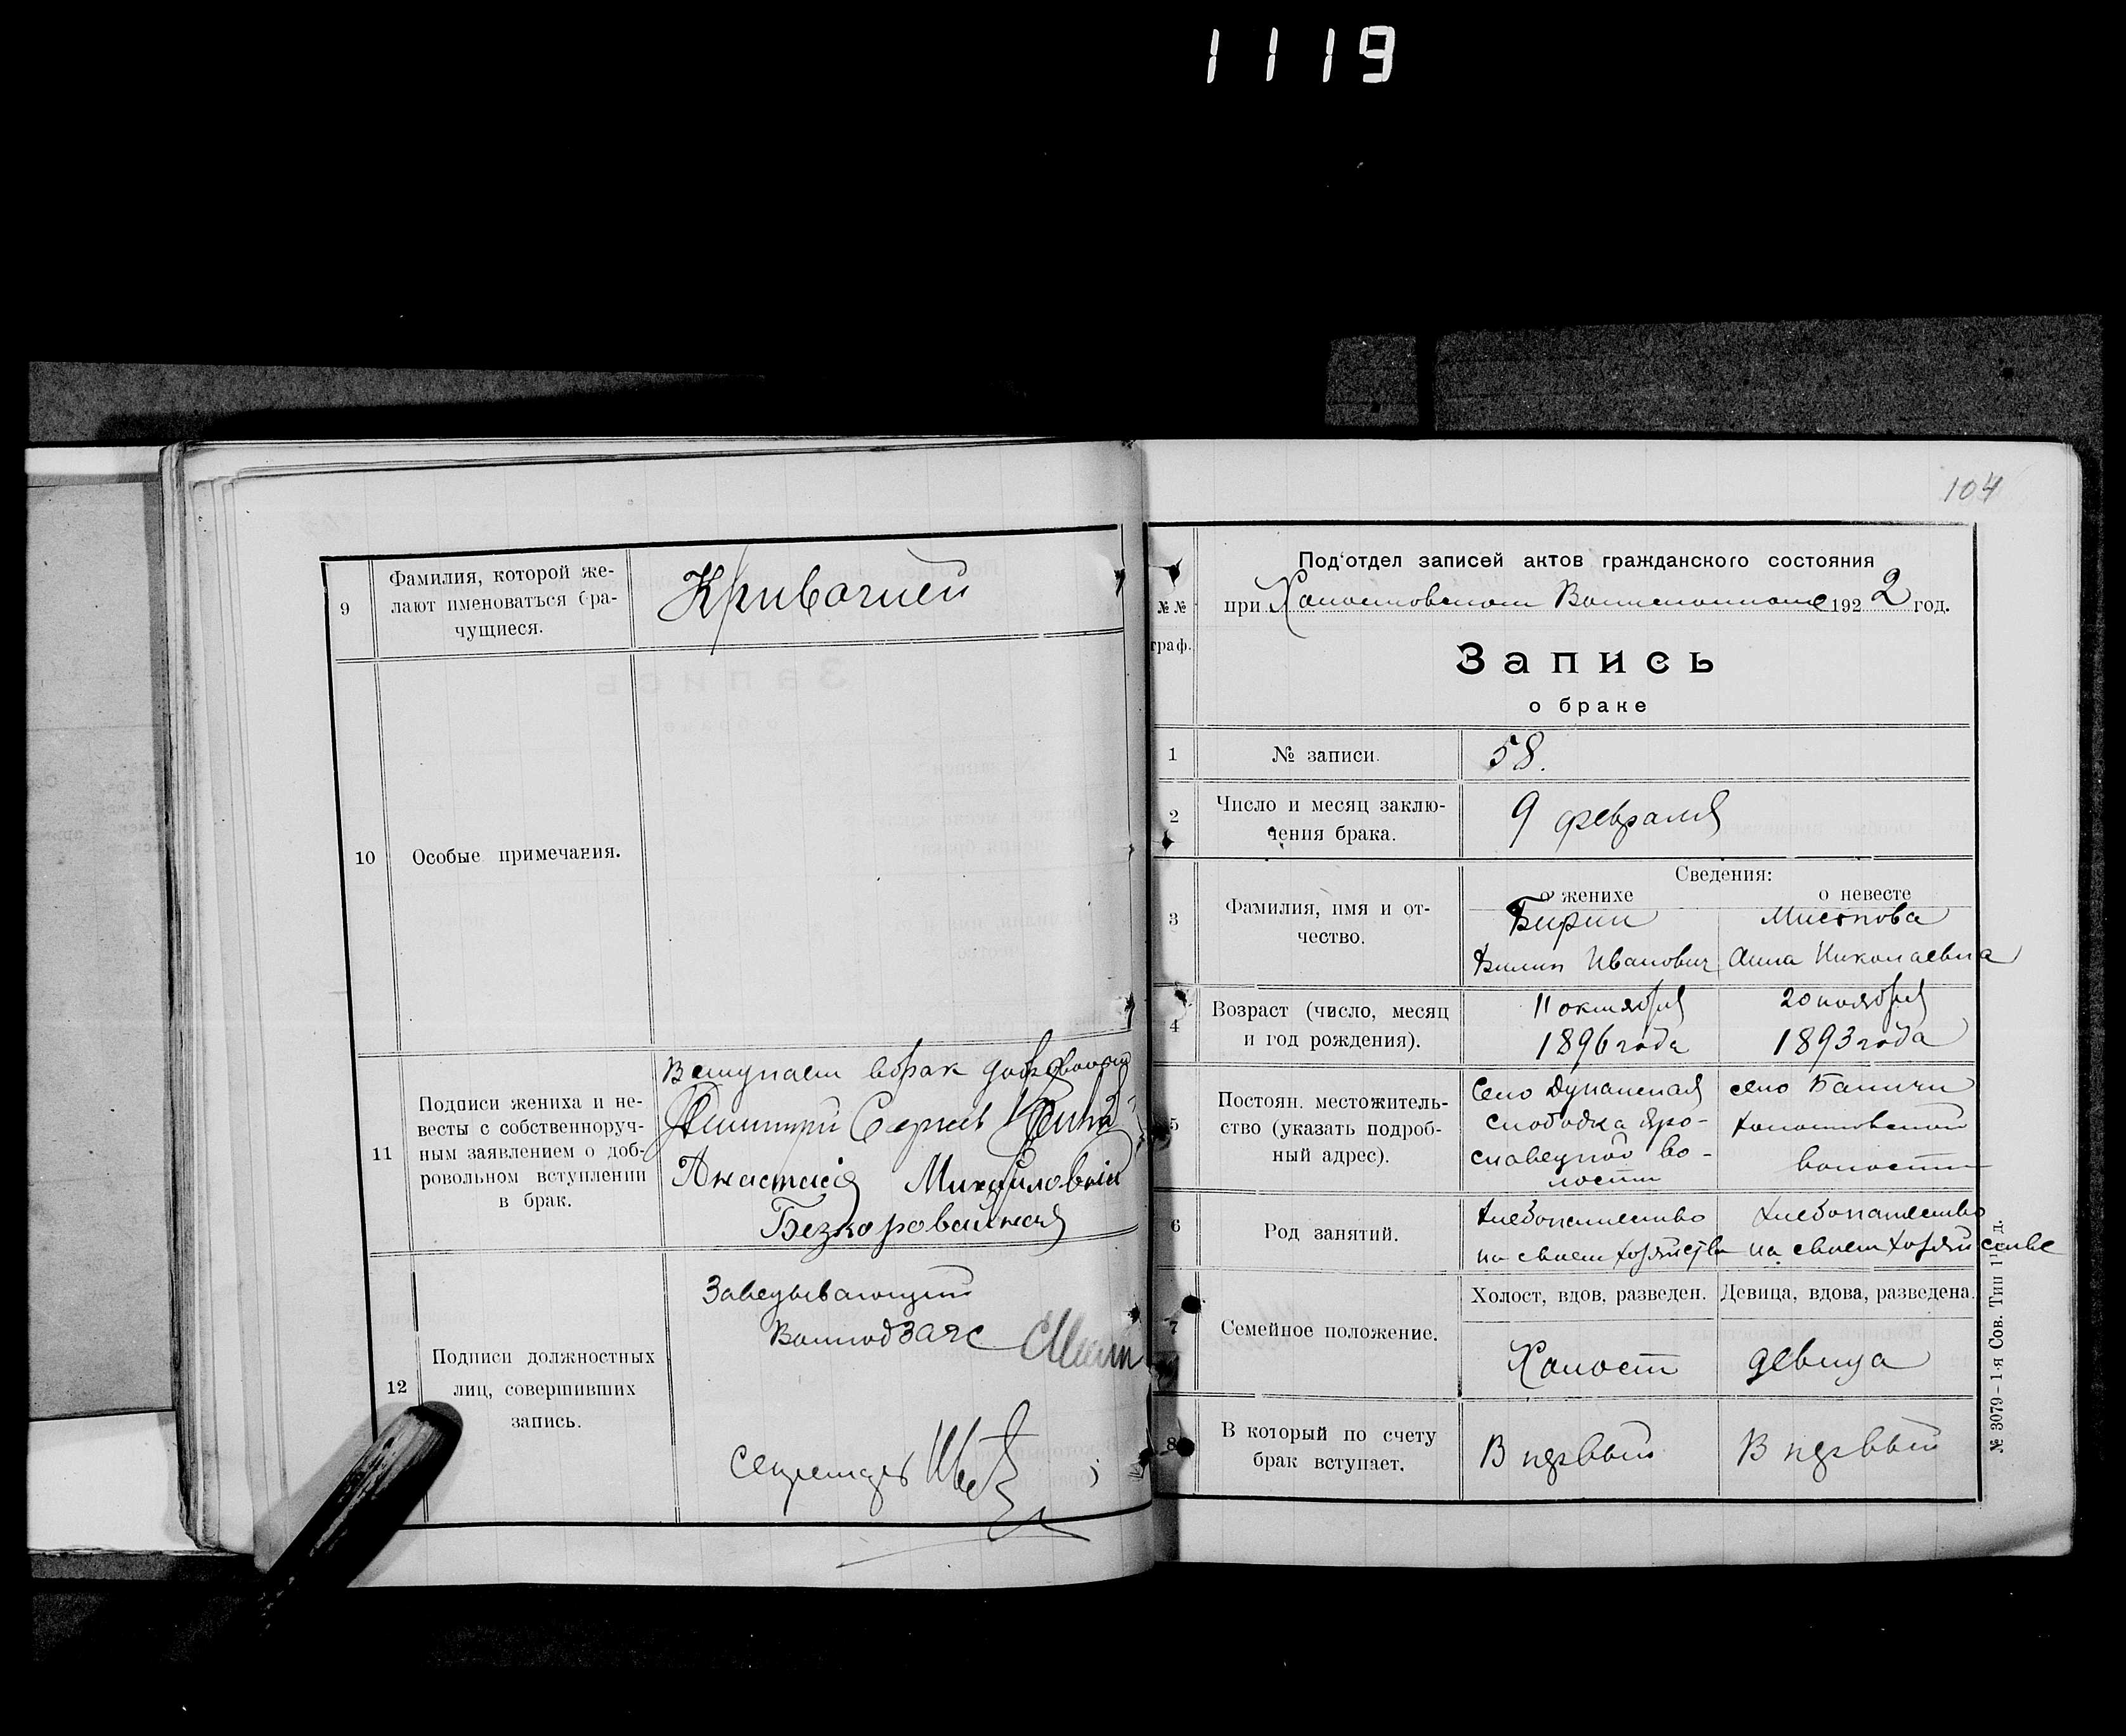 1119
9
Фамилия, которой же-
лают именоваться бра-
чущиеся.
10
Особые примечания.
11
Подписи жениха и не-
весты с собственноруч-
ным заявлением о доб-
ровольном вступлении
в брак.
Вступаем в брак
Димитрий Сергеев
Анастасія Михайловна
Безкоровайная
12
Подписи должностных
лиц, совершивших
запись.
Заведывающий
ЗАГС
Секретарь
104
№№
граф.
Под'отдел записей актов гражданского состояния
при 1922 год.
Запись
о браке
1
№ записи.
58.
2
Число и месяц заклю-
чения брака.
9 февраля
Сведения:
о женихе
о невесте
3
Фамилия, имя и от-
чество.
Иванович
Анна Николаевна
4
Возраст (число, месяц
и год рождения).
11 октября
1896 года
20 ноября
1893 года
5
Постоян. местожитель-
ство (указать подроб-
ный адрес).
Село
слободка Яро-
славецкой во-
лости
село Баничи
волости
6
Род занятий.
Хлебопашество
на своем хозяйстве
Хлебопашество
на своем хозяйстве
7
Семейное положение.
Холост, вдов, разведен.
Девица, вдова, разведена.
Холост
девица
8
В который по счету
брак вступает.
В первый
В первый
№ 3079–1-я Сов. Тип